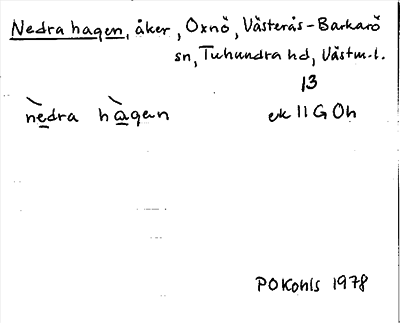 Nedra hagen, åker, Oxnö, Västerås-Barkarö
sn, Tuhundra hd, Västm.l.
13
nèdra hàgen ek 11 G Öh
POKohls 1978